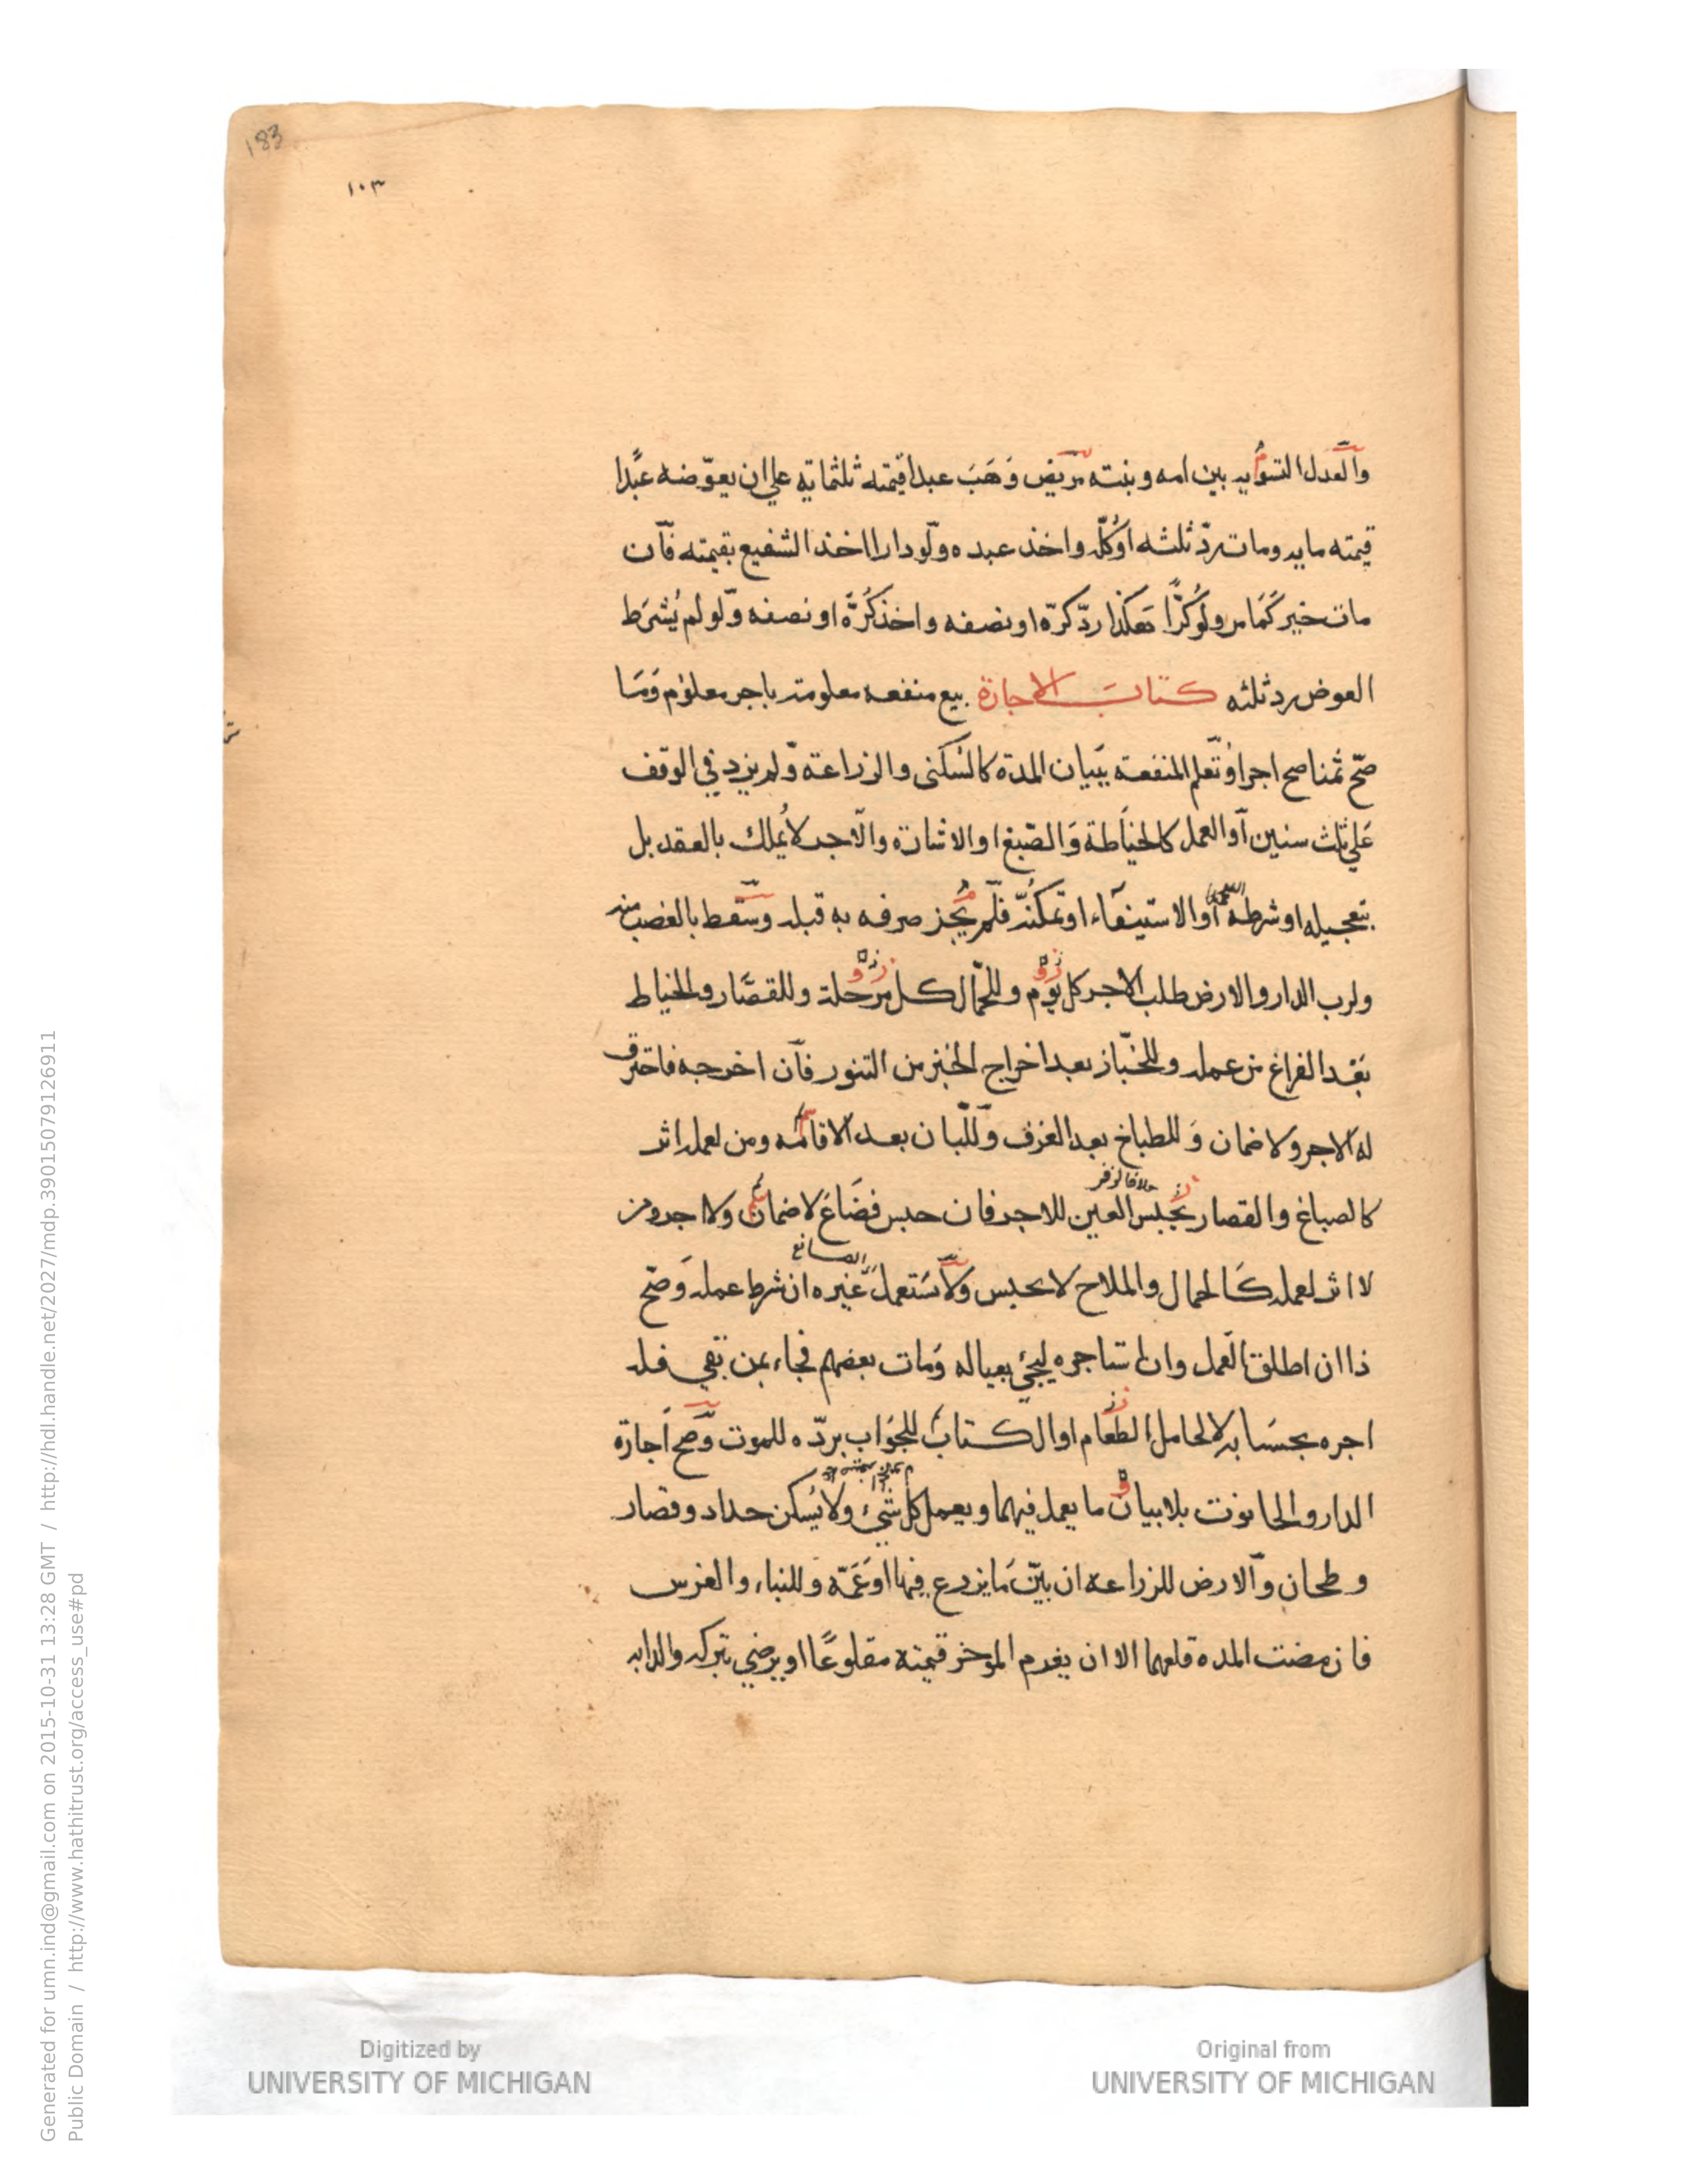 183
١٠٣
والعدل التسوية بين ابنه وبنته مريض وَهَبَ عبدا قيمته ثلثماية علي ان يعوّضه عبدًا
قيمته ماية ومات ردّ ثلثه اوكلّه واخذ عبده ولو دارا اخذ الشفيع بقيمته فان
مات خير كَمَا مر ولو كُرًّا هكذا ردّ كرّه او نصفه واخذ كُرَّهُ او نصفه ولو لم يُشرَط
العوض رد ثلثه كتاب الاجارة بيع منفعه معلومة باجر معلوم وَمَا
صَحّ ثمنا صح اجرا وتُعلم المنفعة ببَيان المدة كالسُكنى والزراعة ولم يزد في الوقف
عَلي ثلث سنين او العمل كالخياطة وَالصّبغ او الاشارة والاجر لا يُملك بالعقد بل
بتعجيله او شرطه او الاستيفاء او تمكُّنه فلم يجُز صرفه به قبله وسَقط بالغصب منه
ولرب الدار والارض طلب الاجر كل يَوم وللجمّال كل مَرحلة وللقصّار والخياط
بَعْد الفراغ من عمله وللخبّاز بعد اخراج الخبز من التنور فان اخرجه فاحترق
له الاجر ولا ضمان وَللطباخ بعد الغرف وللّبان بعد الاقامة ومن لعمله اثر
خلافا لزفر
كالصباغ والقصار يحَبس العين للاجر فان حبس فضَاعَ لا ضمان ولا اجر ومن
الصانع
لا اثر لعمله كَالحمال والملاح لا يحبس ولا يَستعمل غيره ان شرط عمله وَصَح
ذا ان اطلق العمل وان استاجره ليجئ بعياله وَمات بعضهم فجاء بمن بقي فله
اجره بحسَابه لا لحامل الطعَام او الكتابِ للجَوَاب بردّه للموت وَصح اجارة
الدار والحانوت بلا بيان ما يعمل فيهما ويعمل كل شَيء ولا يُسكن حداد وقصار
وطحان والارض للزراعه ان بيّن مَا يزرع فيها او عَمّه وللبناء والغرس
فان مضت المده قلعهما الا ان يغرم الموخر قيمته مقلوعًا او يرضي بتركه والدابه
Digitized by
UNIVERSITY OF MICHIGAN
Original from
UNIVERSITY OF MICHIGAN
Generated for umn.ind@gmail.com on 2015-10-31 13:28 GMT / http://hdl.handle.net/2027/mdp.39015079126911
Public Domain / http://www.hathitrust.org/access_use#pd